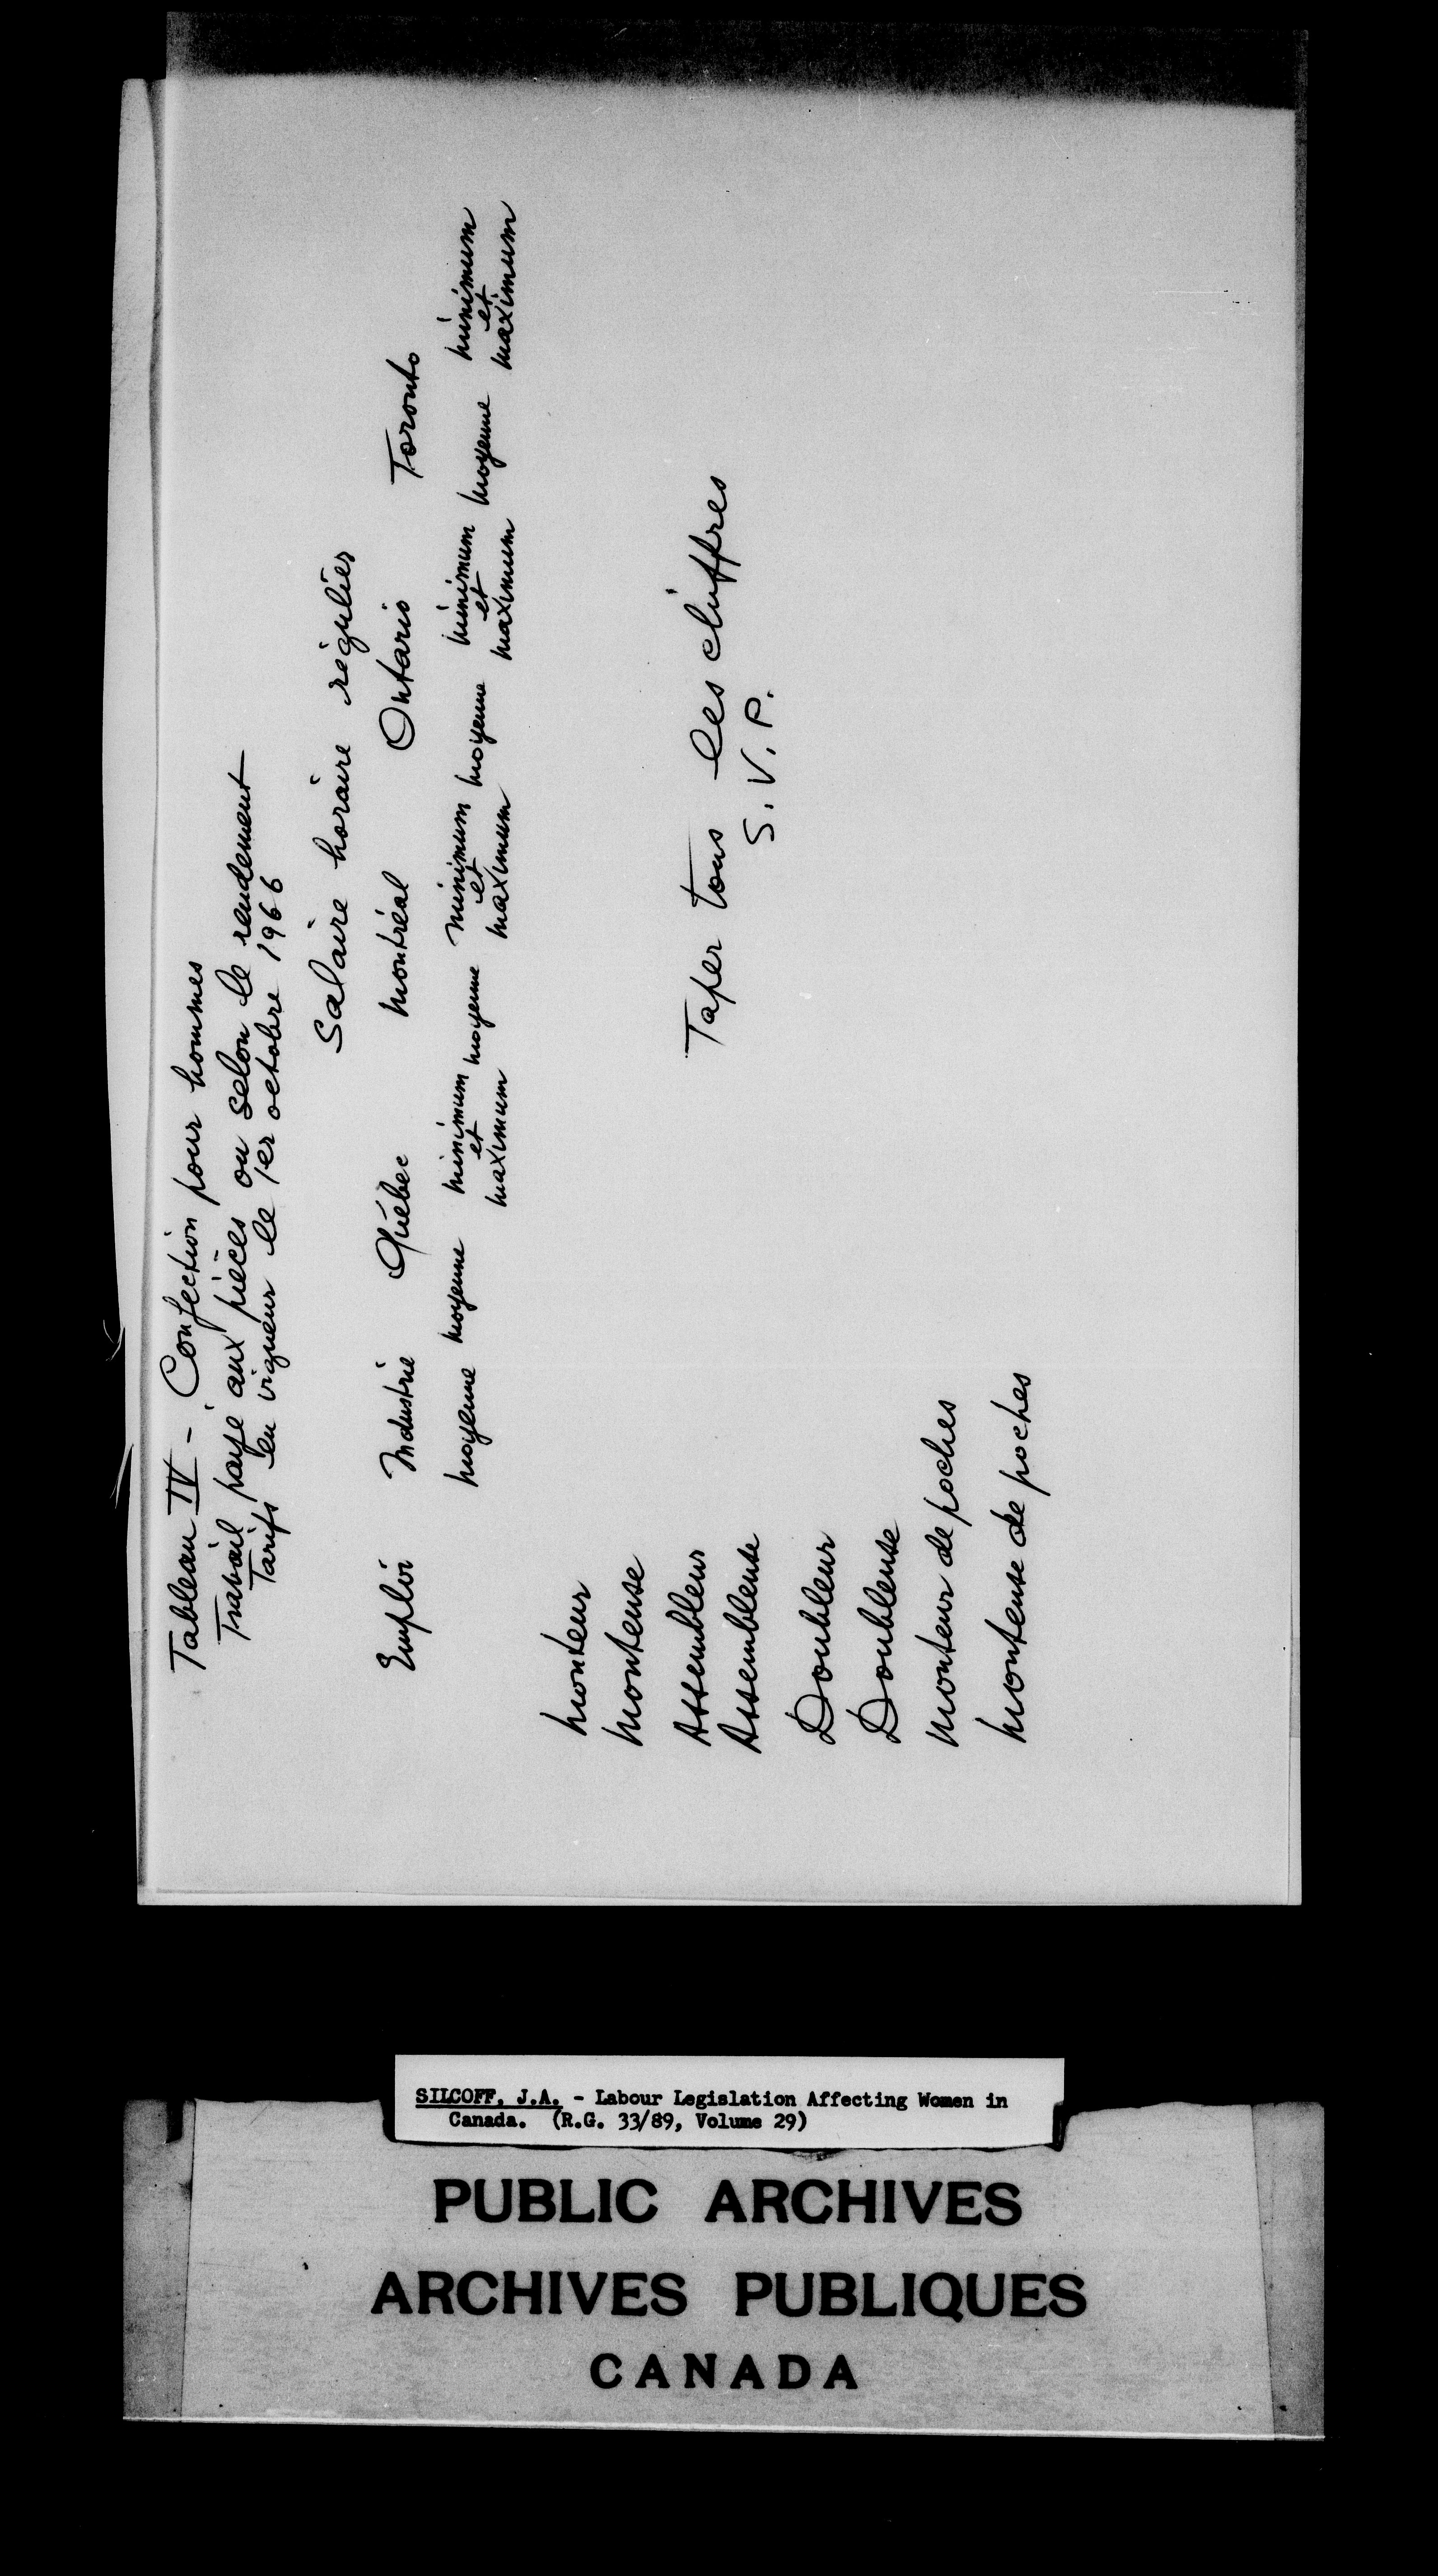 Tableau IV - Confection pour hommes
Travail payé aux pièces ou selon le rendement
Tarifs en vigueur le 1er octobre 1966
Salaire horaire régulier
Emploi Industrie Québec Montréal Ontario Toronto
moyenne moyenne minimum et maximum moyenne minimum et maximum moyenne minimum et maximum moyenne minimum et maximum
Monteur
Monteuse
Assembleur
Assembleuse
Taper tous les chiffres
S.V.P.
Doubleur
Doubleuse
Monteur de poches
Monteuse de poches
SILCOFF, J.A. - Labour Legislation Affecting Women in
Canada. (R.G. 33/89, Volume 29)
PUBLIC ARCHIVES
ARCHIVES PUBLIQUES
CANADA